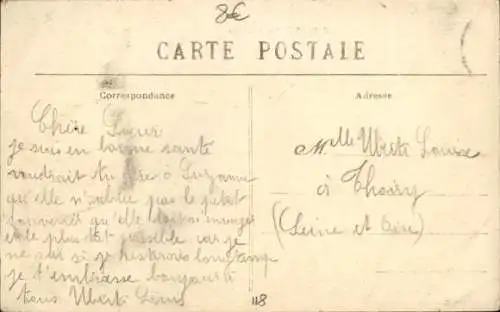 8€
CARTE POSTALE
Correspondance
Adresse
Chère Sœur
je suis en bonne santé
voudrait tu dire à Suzanne
qu'elle n'oublie pas le petit
souvenir qu'elle doit
le plus tôt possible car je
ne sai si je resterais longtemp
je t'embrasse bonjour à
tous
Mlle Louise
à Thoiry
(Seine et Oise)
118